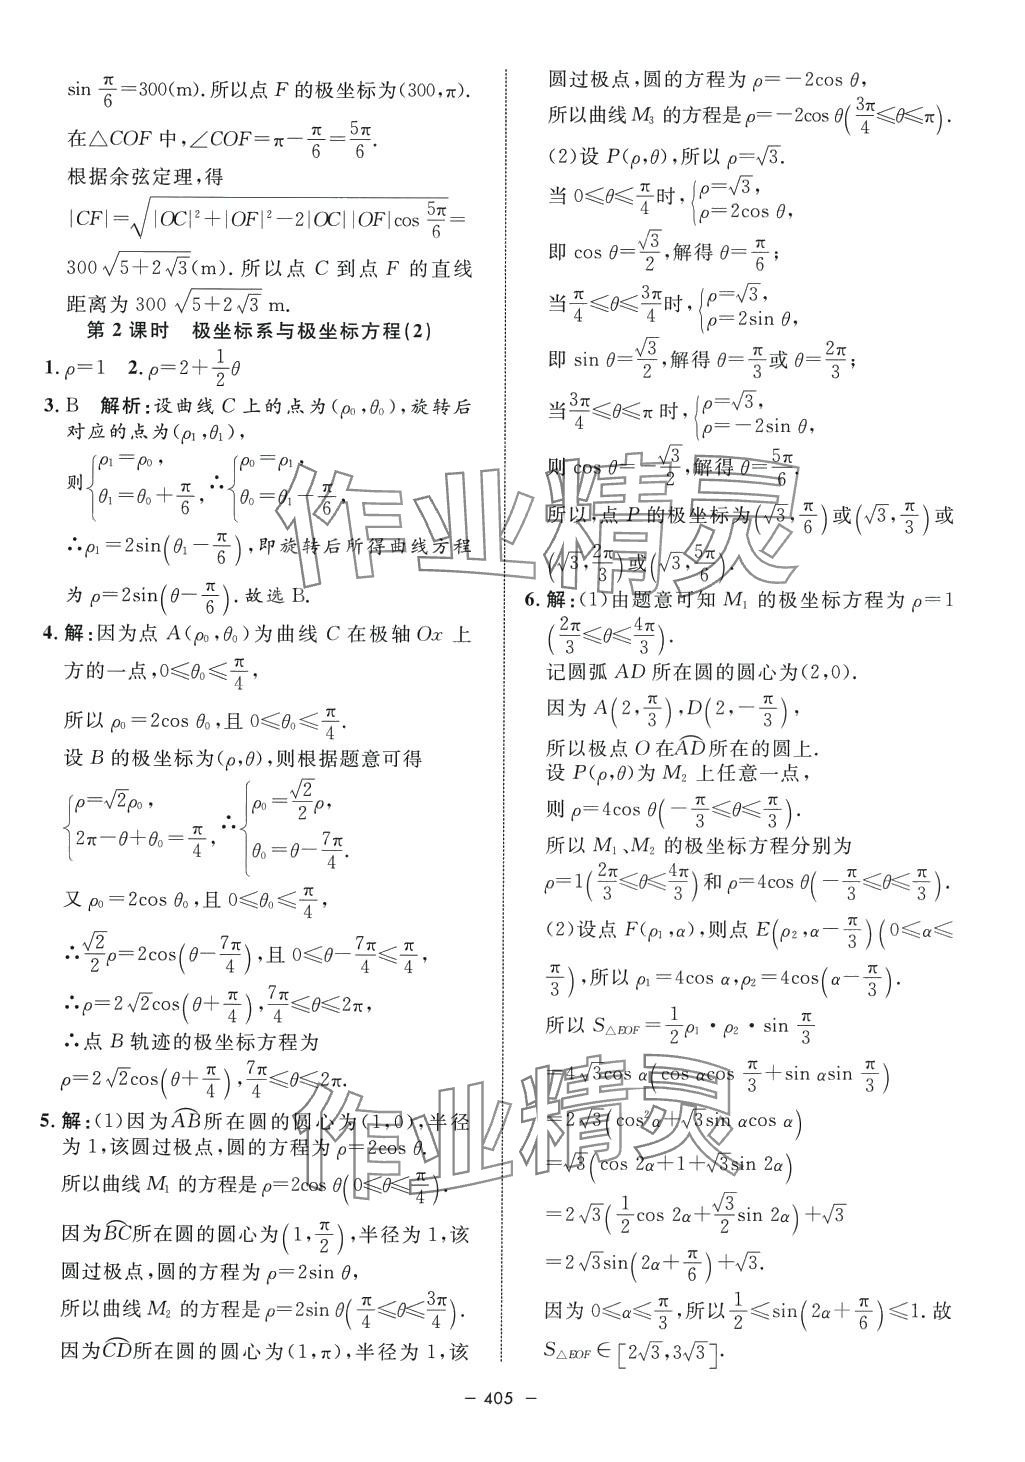 sin π/6=300(m).所以点 F 的极坐标为(300,π).
在△COF 中,∠COF=π-π/6=5π/6.
根据余弦定理,得
|CF|=√(|OC|²+|OF|²-2|OC||OF|cos 5π/6)=
300√(5+2√3)(m).所以点 C 到点 F 的直线
距离为 300√(5+2√3) m.
第 2 课时 极坐标系与极坐标方程(2)
1. ρ=1 2. ρ=2+1/2θ
3. B 解析:设曲线 C 上的点为(ρ₀,θ₀),旋转后
对应的点为(ρ₁,θ₁),
则{ρ₁=ρ₀, θ₁=θ₀+π/6, ∴{ρ₀=ρ₁, θ₀=θ₁-π/6,
∴ρ₁=2sin(θ₁-π/6),即旋转后所得曲线方程
为 ρ=2sin(θ-π/6).故选 B.
4. 解:因为点 A(ρ₀,θ₀)为曲线 C 在极轴 Ox 上
方的一点,0≤θ₀≤π/4,
所以 ρ₀=2cos θ₀,且 0≤θ₀≤π/4.
设 B 的极坐标为(ρ,θ),则根据题意可得
{ρ=√2ρ₀, 2π-θ+θ₀=π/4, ∴{ρ₀=√2/2ρ, θ₀=θ-7π/4.
又 ρ₀=2cos θ₀,且 0≤θ₀≤π/4,
∴√2/2ρ=2cos(θ-7π/4),且 0≤θ-7π/4≤π/4,
∴ρ=2√2cos(θ+π/4),7π/4≤θ≤2π,
∴点 B 轨迹的极坐标方程为
ρ=2√2cos(θ+π/4),7π/4≤θ≤2π.
5. 解:(1)因为AB⌒所在圆的圆心为(1,0),半径
为 1,该圆过极点,圆的方程为 ρ=2cos θ.
所以曲线 M₁ 的方程是 ρ=2cos θ(0≤θ≤π/4).
因为BC⌒所在圆的圆心为(1,π/2),半径为 1,该
圆过极点,圆的方程为 ρ=2sin θ,
所以曲线 M₂ 的方程是 ρ=2sin θ(π/4≤θ≤3π/4).
因为CD⌒所在圆的圆心为(1,π),半径为 1,该
圆过极点,圆的方程为 ρ=-2cos θ,
所以曲线 M₃ 的方程是 ρ=-2cos θ(3π/4≤θ≤π).
(2)设 P(ρ,θ),所以 ρ=√3.
当 0≤θ≤π/4时,{ρ=√3, ρ=2cos θ,
即 cos θ=√3/2,解得 θ=π/6;
当π/4≤θ≤3π/4时,{ρ=√3, ρ=2sin θ,
即 sin θ=√3/2,解得 θ=π/3或 θ=2π/3;
当3π/4≤θ≤π 时,{ρ=√3, ρ=-2sin θ,
则 cos θ=-√3/2,解得 θ=5π/6.
所以,点 P 的极坐标为(√3,π/6)或(√3,π/3)或
(√3,2π/3)或(√3,5π/6).
6. 解:(1)由题意可知 M₁ 的极坐标方程为 ρ=1
(2π/3≤θ≤4π/3).
记圆弧 AD 所在圆的圆心为(2,0).
因为 A(2,π/3),D(2,-π/3),
所以极点 O 在AD⌒所在的圆上.
设 P(ρ,θ)为 M₂ 上任意一点,
则 ρ=4cos θ(-π/3≤θ≤π/3).
所以 M₁、M₂ 的极坐标方程分别为
ρ=1(2π/3≤θ≤4π/3)和 ρ=4cos θ(-π/3≤θ≤π/3).
(2)设点 F(ρ₁,α),则点 E(ρ₂,α-π/3)(0≤α≤
π/3),所以 ρ₁=4cos α,ρ₂=4cos(α-π/3).
所以 S△EOF=1/2ρ₁·ρ₂·sin π/3
=4√3cos α(cos αcos π/3+sin αsin π/3)
=2√3(cos²α+√3sin αcos α)
=√3(cos 2α+1+√3sin 2α)
=2√3(1/2cos 2α+√3/2sin 2α)+√3
=2√3sin(2α+π/6)+√3.
因为 0≤α≤π/3,所以1/2≤sin(2α+π/6)≤1.故
S△EOF∈[2√3,3√3].
- 405 -
作业精灵
作业精灵